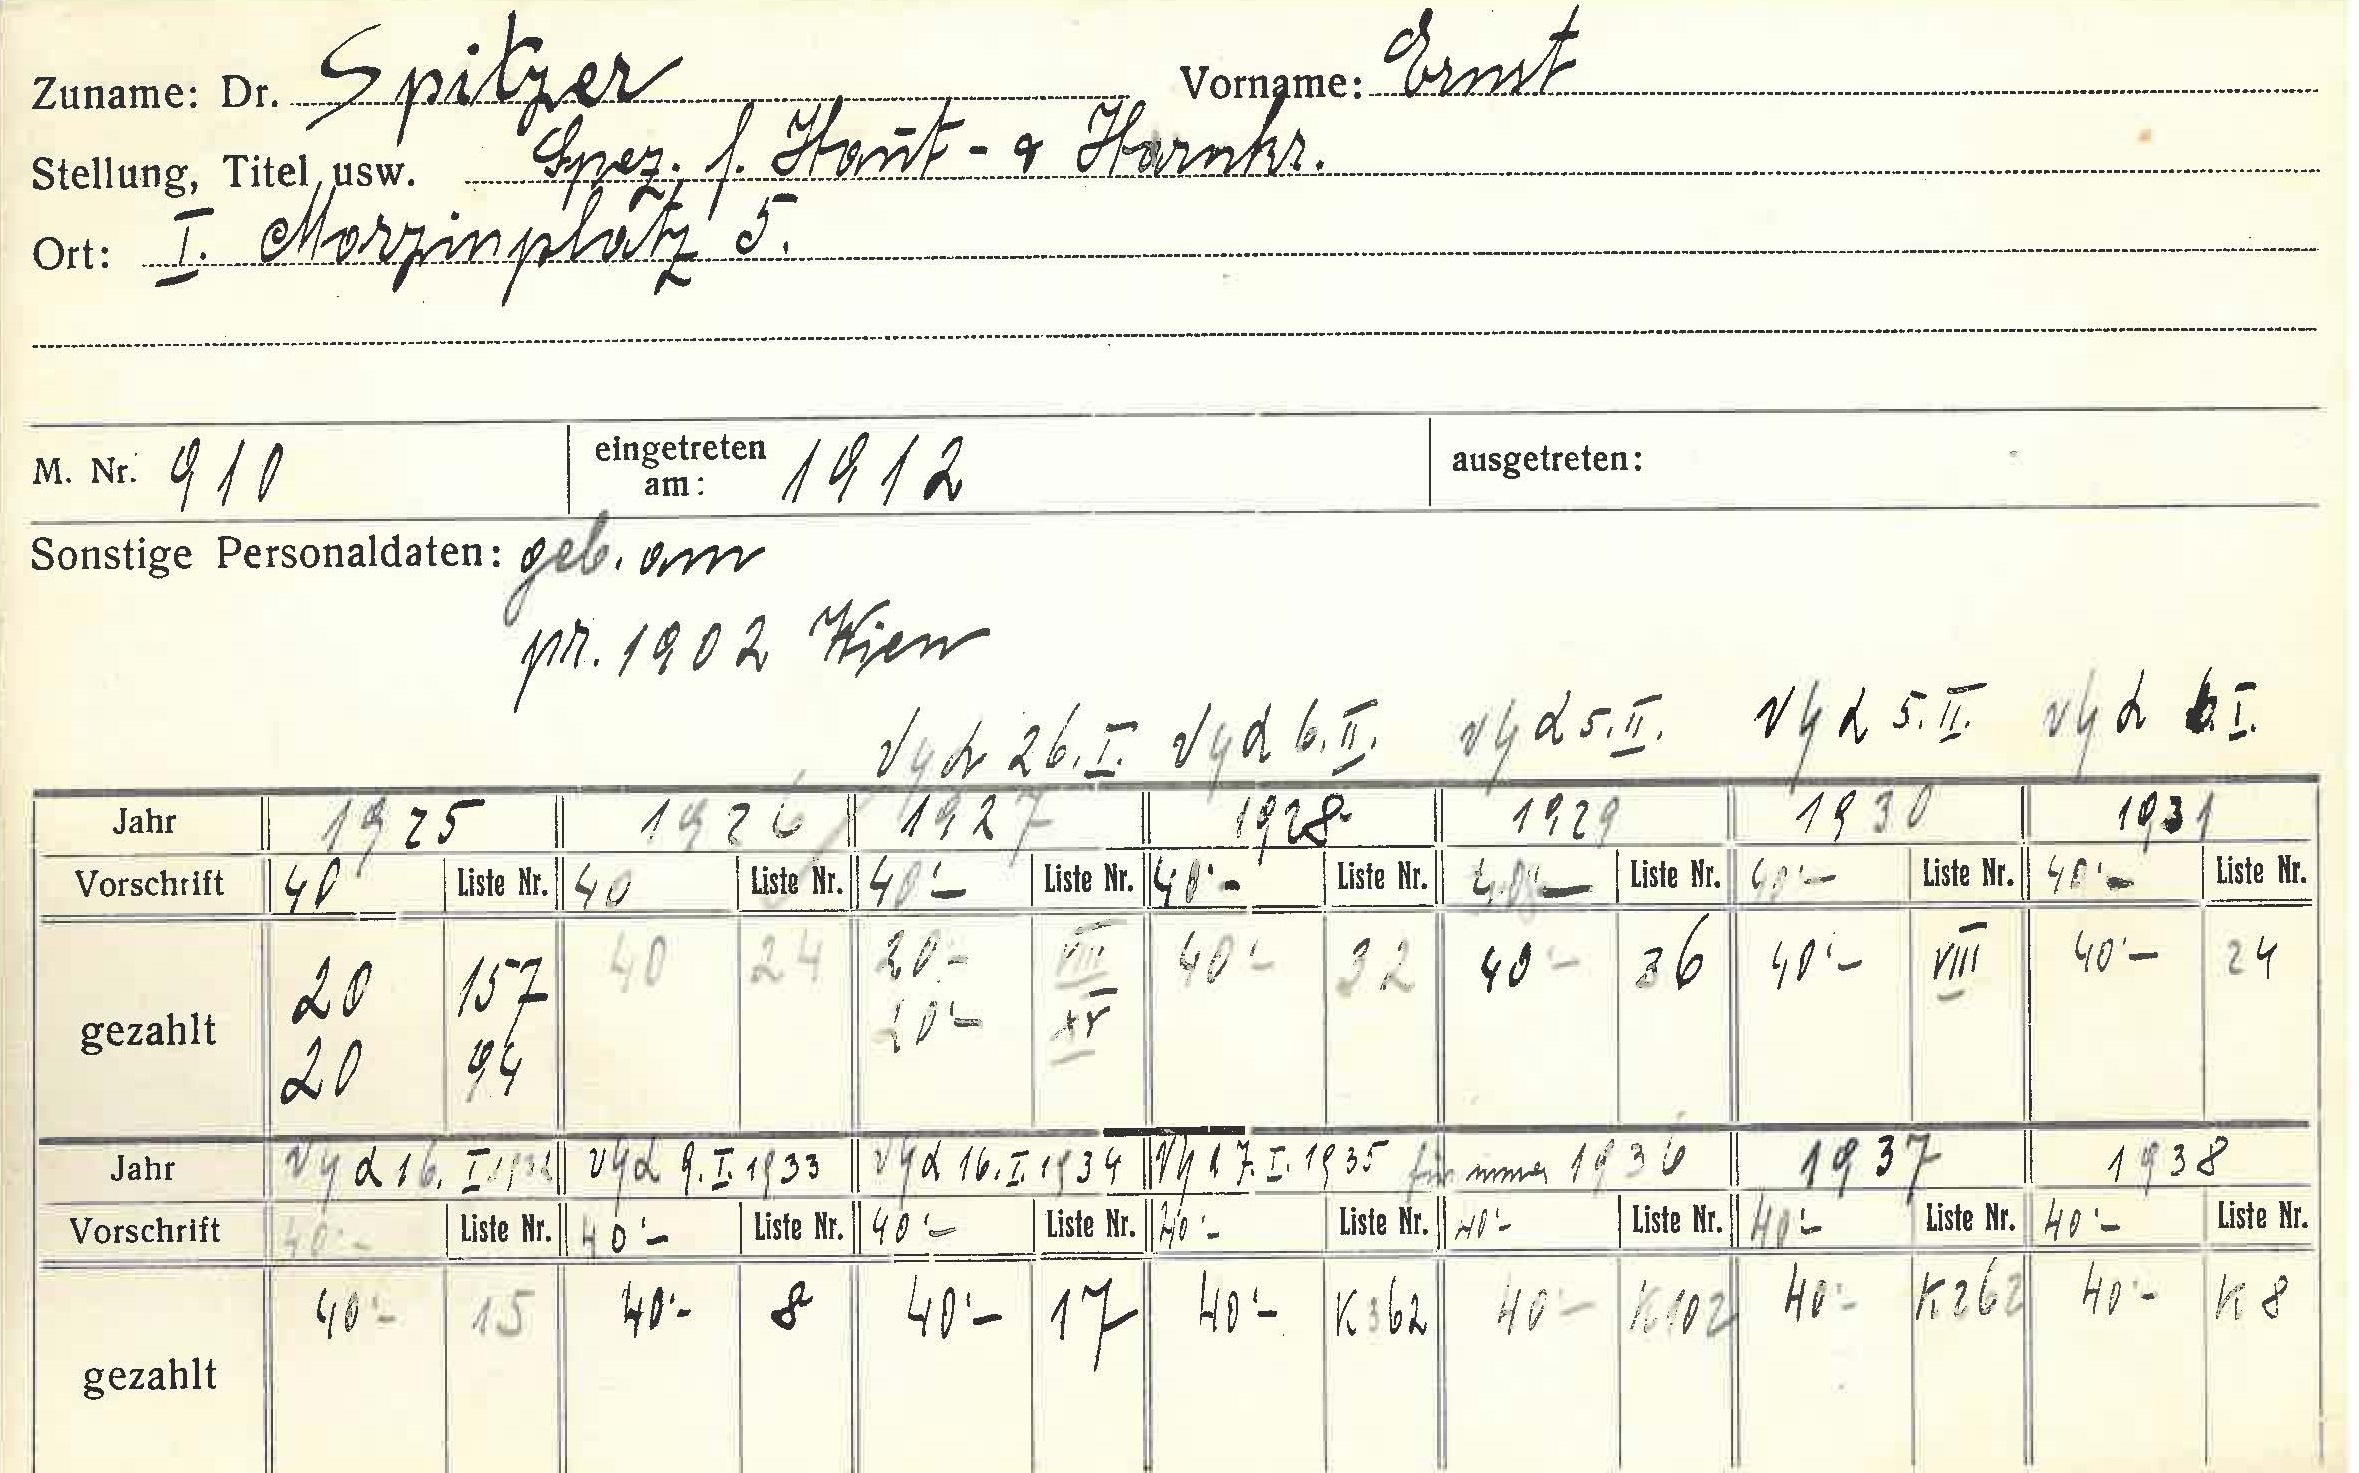 Zuname: Dr. Spitzer Vorname: Ernst
Stellung, Titel usw. Spez. f. Haut- & Harnkr.
Ort: I. Morzinplatz 5.
M. Nr. 910 eingetreten am: 1912 ausgetreten:
Sonstige Personaldaten: geb. am
pr. 1902 Wien
26.I. 6.II. 5.II. 5.II. I.
Jahr 1925 1926 1927 1928 1929 1930 1931
Vorschrift 40 Liste Nr. 40 Liste Nr. 40'- Liste Nr. 40'- Liste Nr. 40'- Liste Nr. 40'- Liste Nr. 40'- Liste Nr.
gezahlt 20 157 40 24 20'- VIII 40'- 32 40'- 36 40'- VIII 40'- 24
20 94 20'- XV
Jahr 16. I 1932 9.I.1933 16.I.1934 7.I.1935 für immer 1936 1937 1938
Vorschrift 40'- Liste Nr. 40'- Liste Nr. 40'- Liste Nr. 40'- Liste Nr. 40'- Liste Nr. 40'- Liste Nr. 40'- Liste Nr.
gezahlt 40'- 15 40'- 8 40'- 17 40'- K 362 40'- K 102 40'- K 262 40'- K 8